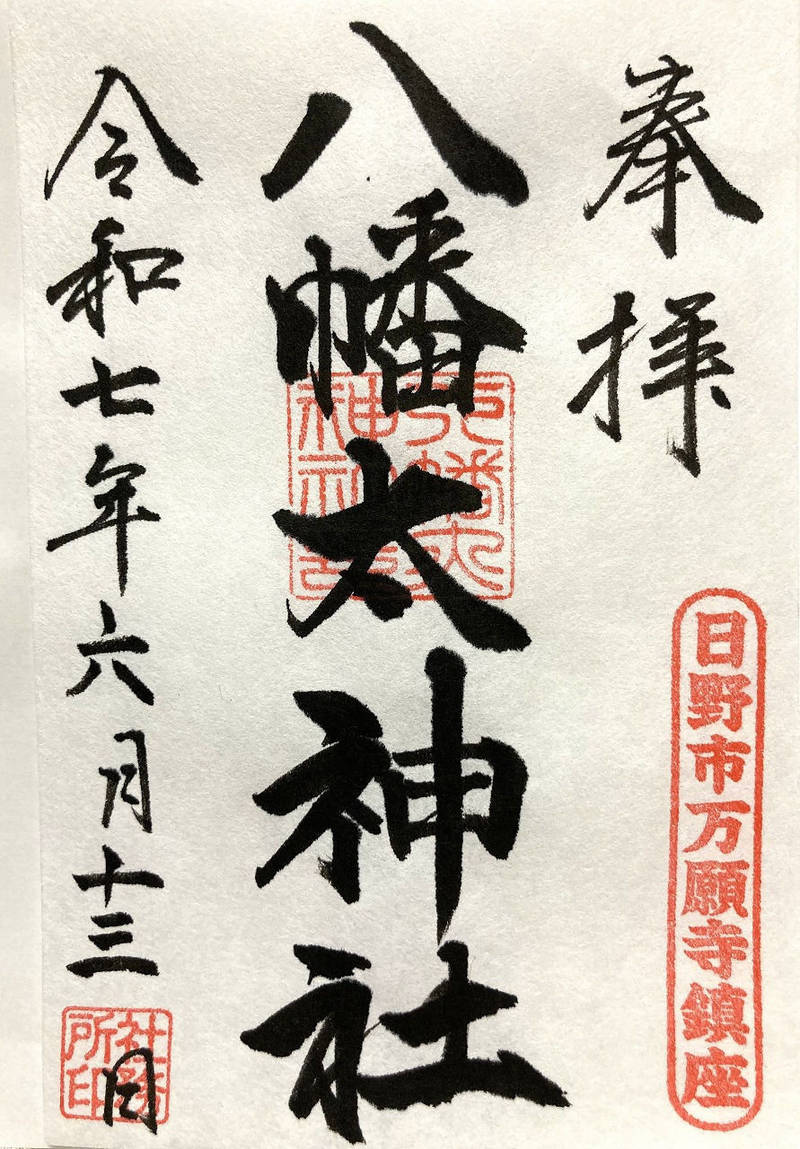 奉拝
日野市万願寺鎮座
八幡太神社
令和七年六月十三日
社務所印